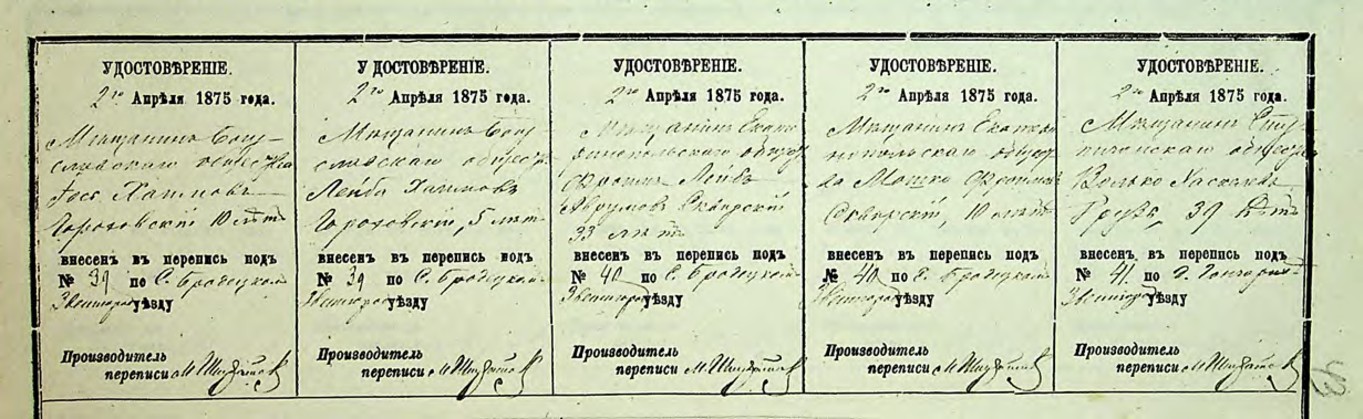 УДОСТОВѢРЕНІЕ.
2го Апрѣля 1875 года.
Мѣщанинъ Богу-
славскаго общества
Іос Хаимовъ
Гороховскій 10 лѣтъ
внесенъ въ перепись подъ
№ 39 по С. Бродецкому
Звенигород уѣзду
Производитель
переписи
УДОСТОВѢРЕНІЕ.
2го Апрѣля 1875 года.
Мѣщанинъ Богу-
славскаго общест
Лейба Хаимовъ
Гороховскій, 5 лѣтъ
внесенъ въ перепись подъ
№ 39 по С. Бродецкому
Звенигород уѣзду
Производитель
переписи
УДОСТОВѢРЕНІЕ.
2го Апрѣля 1875 года.
Мѣщанинъ Екате
ринопольскаго общест
Фроимъ Лейбъ
Аврумовъ Сквирскій
33 лѣтъ
внесенъ въ перепись подъ
№ 40 по С. Бродецком
Звенигород уѣзду
Производитель
переписи
УДОСТОВѢРЕНІЕ.
2го Апрѣля 1875 года.
Мѣщанинъ Екатери
нопольскаго общест
ва Мошко Фроимов
Сквирскій, 10 лѣтъ
внесенъ въ перепись подъ
№ 40 по С. Бродецком
Звенигород уѣзду
Производитель
переписи
УДОСТОВѢРЕНІЕ.
2го Апрѣля 1875 года.
Мѣщанинъ
общест
Волько Хаскелев
39 лѣтъ
внесенъ въ перепись подъ
№ 41 по
Звенигород уѣзду
Производитель
переписи